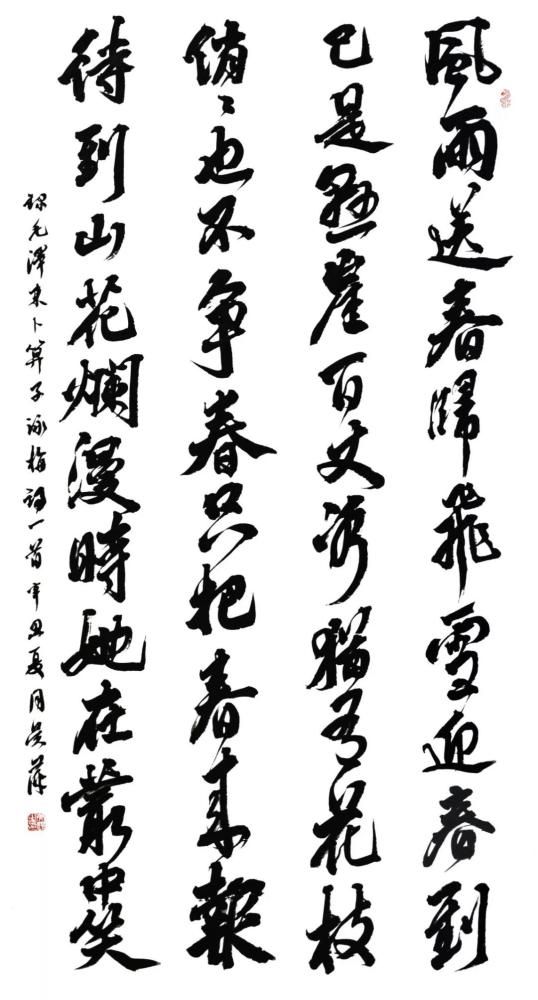 風雨送春歸飛雪迎春到
已是懸崖百丈冰猶有花枝
俏〻也不争春只把春來報
待到山花爛漫時她在叢中笑
錄毛澤東卜算子詠梅詞一首辛丑夏月